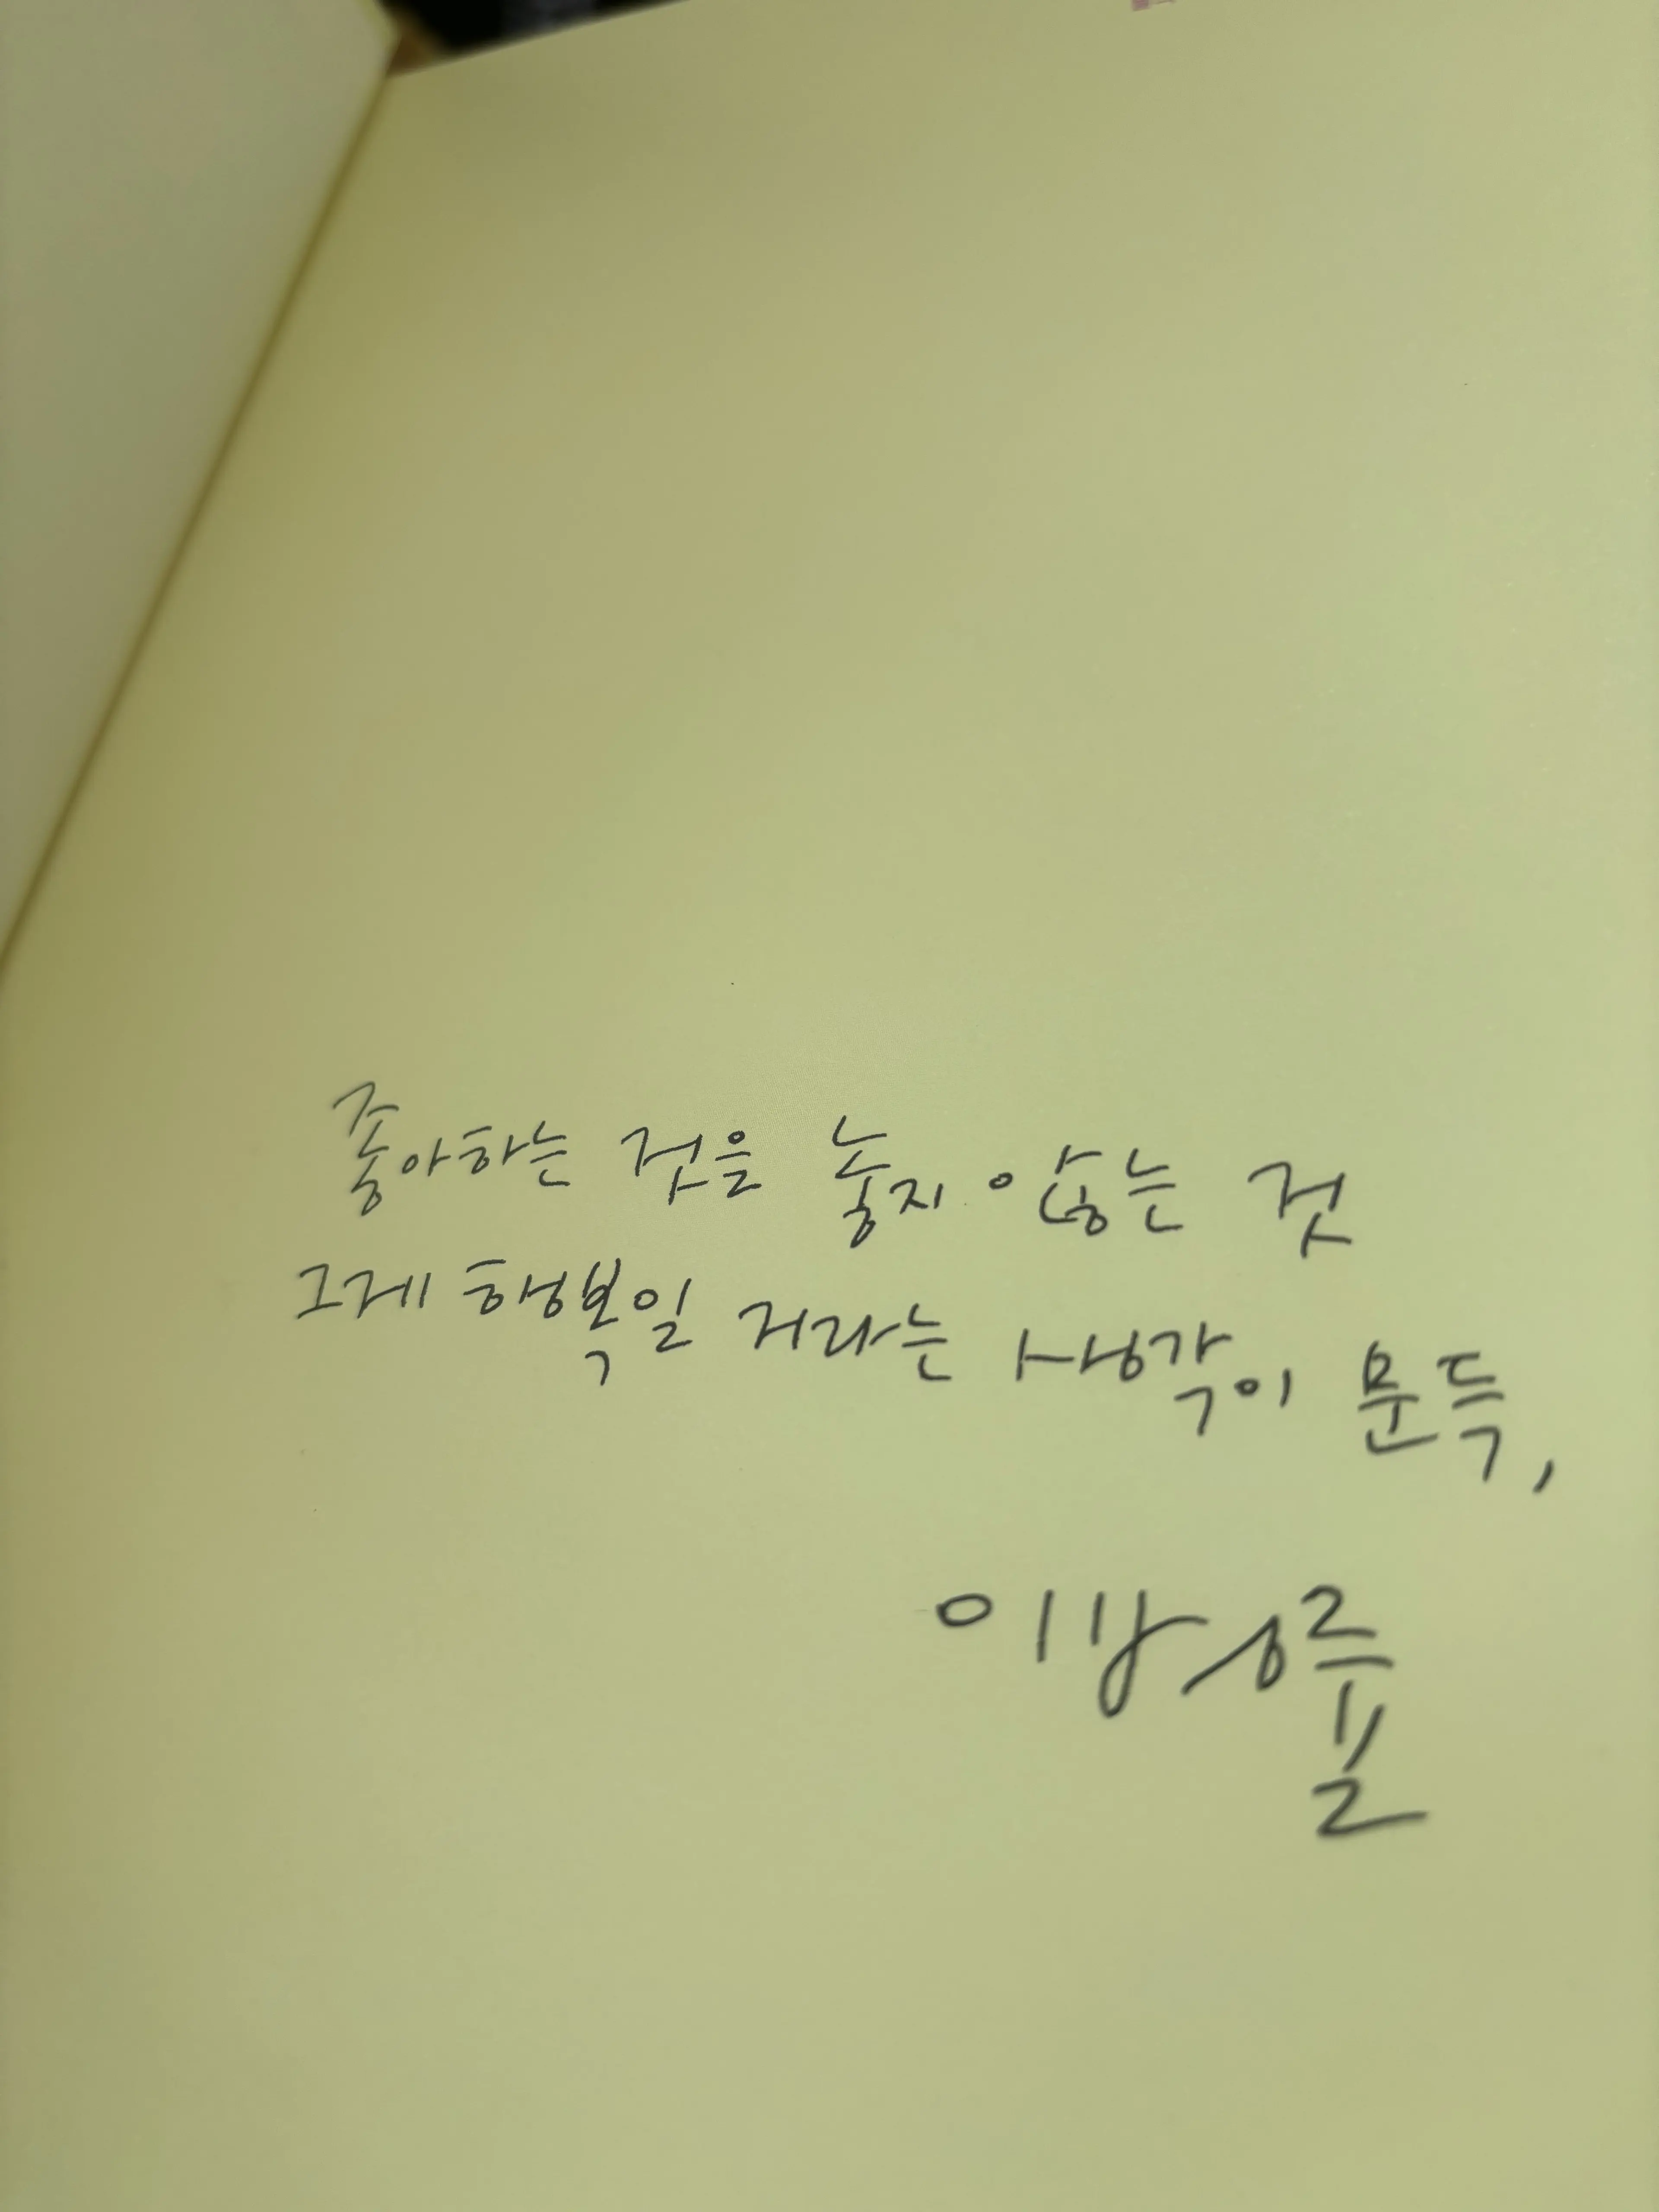 좋아하는 것을 놓지 않는 것
그게 행복일 거라는 생각이 문득,